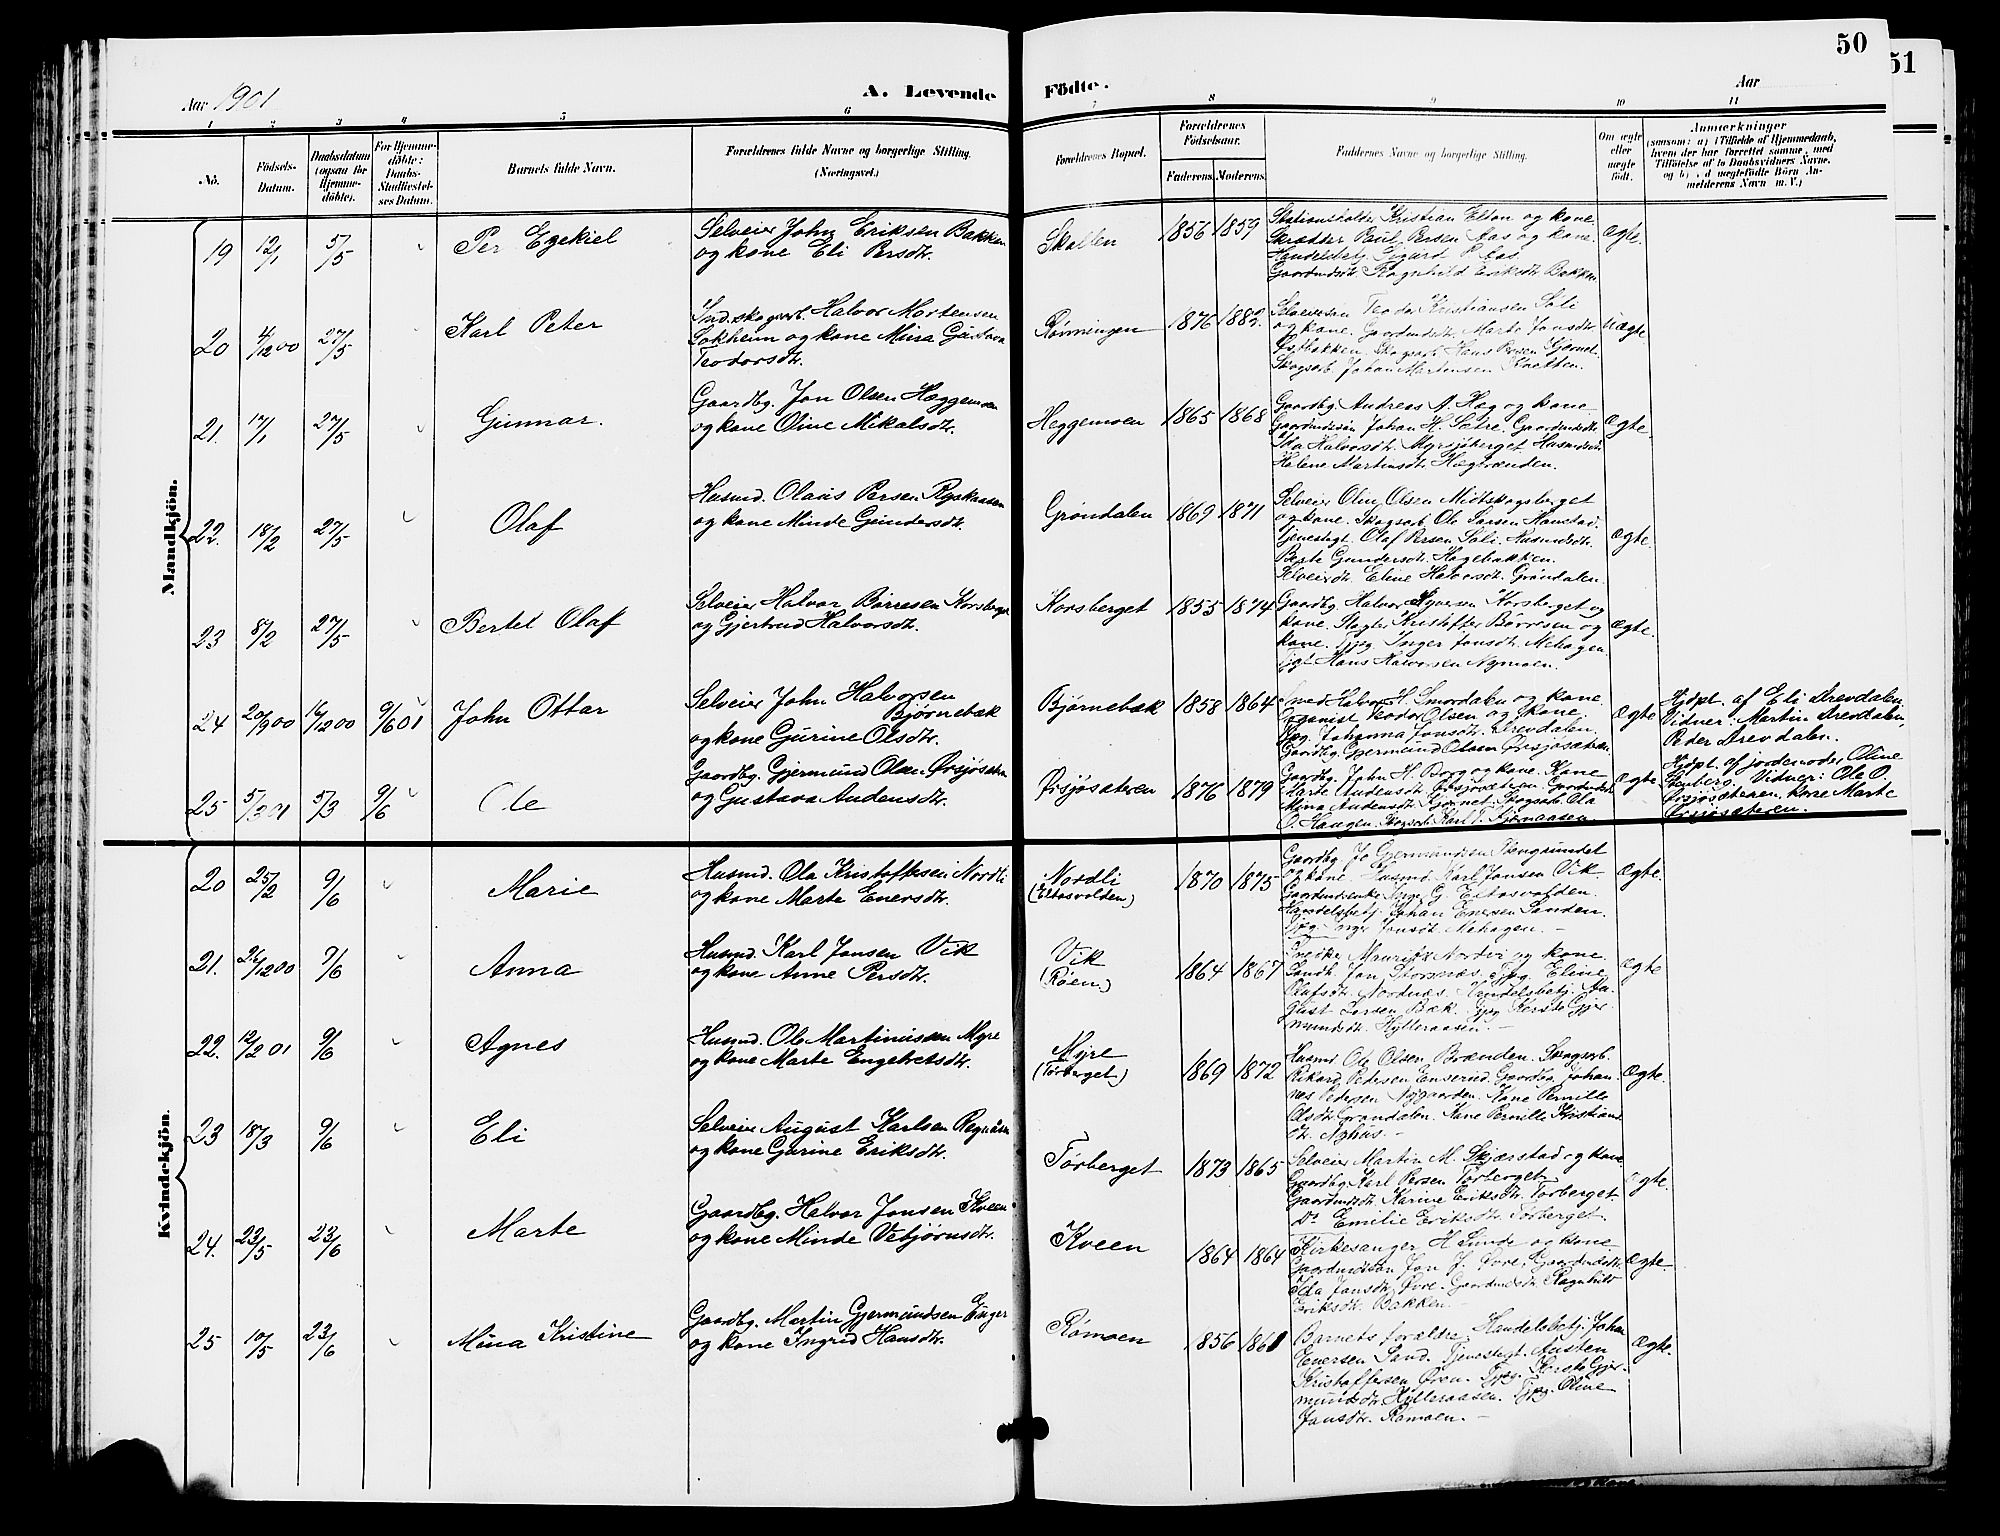 50
51
Aar 1901
A. Levende Födte.
Aar
1 2 3 4 5 6 7 8 9 10 11
No.
Födsels-Datum.
Daabsdatum (ogsaa for Hjemmedöbte).
For Hjemmedöbte: Daabs-Stadfæstelses Datum.
Barnets fulde Navn.
Forældrenes fulde Navne og borgerlige Stilling.
(Næringsvei.)
Forældrenes Bopæl.
Forældrenes Födselsaar.
Faderens. Moderens.
Faddernes Navne og borgerlige Stilling.
Om ægte eller uægte födt.
Anmærkninger
(saasom: a) i Tilfælde af Hjemmedaab,
hvem der har forrettet samme, med
Tilföielse af to Daabsvidners Navne,
og b) d uægtefödte Börn An-
melderens Navn m. V.)
Mandkjön.
19 12/1 5/5 Per Ezekiel
Selveier John Eriksen Bakken
og kone Eli Persdtr.
Skalten 1856 1859
Stationsholder Kristian Elton og kone.
Skrædder Paul Persen Aas og kone.
Handelsbetj. Sigurd P. Aas
Gaardmdsdtr. Ragnhild Eriksdtr. Bakken
ægte.
20 4/12 00 27/5 Karl Peter
Ind. skogsarb. Halvor Mortensen
Lokheim og kone Mina Gustava
Teodorsdtr.
Rønningen 1876 1882
Selveiersøn Teodor Kristiansen Sæli
og kone. Gaardmdsdtr. Marte Jonsdtr.
Østbakken. Skogsarb. Hans Persen Kjernet.
Skogsarb. Johan Martensen Skalten.
Uægte
21. 17/1 27/5 Gunnar.
Gaardbg. Jon Olsen Hæggemoen
og kone Oline Mikalsdtr.
Heggemoen 1865 1868
Gaardbg. Andreas A. Hæg og kone
Gaardmdssøn Johan H. Sætre. Gaardmdsdtr.
Ida Halvorsdtr. Myrsjøberget
Helene Martinsdtr. Hægbrænden.
ægte.
22. 18/2 27/5 Olaf
Husmd. Olaus Persen Ryskaasen
og kone Minde Gundersdtr.
Grøndalen 1869 1871
Selveier Oluf Olsen Midtskogsberget
og kone. Skogsarb. Ole Larsen Nanstad.
Tjenestegt. Olaf Persen Sæli. Husmdsdtr.
Berte Gundersdtr. Hagebakken.
Selveierdtr. Eline Halvorsdtr. Grøndalen.
ægte.
23 8/2 27/5 Bertel Olaf
Selveier Halvor Børresen Korsberget
og Gjertrud Halvorsdtr.
Korsberget 1855 1874
Gaardbg. Halvor Syversen Korsberget og
kone. Slagter Kristoffer Børresen og
kone. Tjpg. Inger Jonsdtr. Mehagen.
Tjgt. Hans Halvorsen Nymoen.
ægte.
24 20/9 00 16/12 00 9/6 01 John Ottar
Selveier John Halvorsen
Bjørnebæk
og kone Gurine Olsdtr.
Bjørnebæk 1858 1864
Smed Halvor H. Smordalen og kone.
Organist Teodor Olsen og kone.
Tjpg. Johanna Jonsdtr. Drevdalen.
Gaardbg. Gjermund Olsen Ørsjøsæteren
ægte
Hjdpt. af Eli Drevdalen,
Vidner: Martin Drevdalen,
Peder Drevdalen.
25 5/3 01 5/3 9/6 Ole
Gaardbg. Gjermund Olsen Ørsjøsæteren
og Gustava Andersdtr.
Ørsjøsæteren 1876 1879
Gaardbg. John H. Borg og kone. Kone
Marte Andersdtr. Ørsjøsæteren. Gaardmdsdtr.
Mina Andersdtr. Kjernet. Skogsarb. Ola
O. Haugen. Skogsarb. Karl T. Fjernaasen.
ægte
Hjdpt. af jordemoder Oline
Stenberg. Vidner: Ole O.
Ørsjøsæteren, kone Marte
Ørsjøsæteren.
Kvindekjön.
20 25/2 9/6 Marie
Husmd. Ola Kristoffersen Nordli
og kone Marte Enersdtr.
Nordli
(Eltasvolden)
1870 1875
Gaardbg. Jo Gjermundsen
og kone. Husmd. Karl Jonsen Vik
Gaardmdsenke Inger G. Eltasvolden.
Handelsbetj. Johan Enersen Sanden.
Tjpg. Inger Jonsdtr. Mehagen. —
ægte.
21. 24/12 00 9/6 Anna
Husmd. Karl Jonsen Vik
og kone Anne Persdtr.
Vik
(Røen.)
1864 1867
Snedker Mauritz Nordvi og kone.
Landh. Jon Stornæs. Tjpg. Eline
Olafsdtr. Nordnæs. Handelsbetj. Au-
gust Larsen Bæk. Tjpg Kersto Gjer-
mundsdtr. Hylleraasen. —
ægte
22. 12/2 01 9/6 Agnes
Husmd. Ole Martinussen Myre
og kone Marte Engebretsdtr.
Myre
(Tørberget)
1869 1872
Husmd Ole Olsen Brænden. Skogsarb.
Rikard Pedersen Enserud. Gaardbg. Johan-
nes Pedersen Nygaarden. Kone Pernille
Olsdtr. Grøndalen. Kone Pernille Kristians-
dtr. Nyhus. —
ægte.
23 18/3 9/6 Eli
Selveier August Karlsen Regnaasen
og kone Gurine Eriksdtr.
Tørberget 1873 1865
Selveier Martin M. Skjærstad og kone
Gaardbg. Karl Persen Tørberget
Gaardmdsdtr. Karine Eriksdtr. Tørberget.
Do Emilie Eriksdtr. Tørberget.
ægte.
24. 23/5 23/6 Marte
Gaardbg. Halvor Jonsen Kveen
og kone Minde Vebjørnsdtr.
Kveen 1864 1864
Kirkesanger H. Sunde og kone
Gaardmdssøn Jon J. Øvre. Gaardmdsdtr.
Ida Jonsdtr. Øvre. Gaardmdsdtr. Ragnhild
Eriksdtr. Bakken. —
ægte.
25 10/5 23/6 Mina Kristine
Gaardbg. Martin Gjermundsen Enger
og kone Ingrid Hansdtr.
Rømoen 1856 1861
Barnets forældre. Handelsbetj. Johan
Enersen Sand. Tjenestegt. Austen
Kristoffersen Øren. Tjpg. Kersto Gjer-
mundsdtr. Hylleraasen. Tjpg. Oline
Jonsdtr. Rømoen. —
ægte.